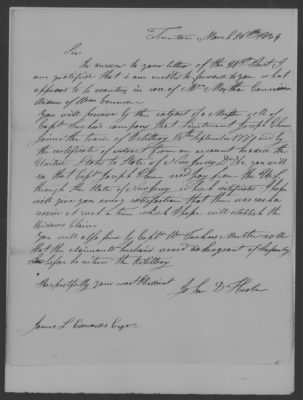 Trenton March 26th 1849
Sir
In answer to your letter of the 21st Inst. I
am gratified that I am enabled to forward to you what
appears to be wanting in case of Mrs Martha Cannon
Widow of Wm Cannon
You will perceive by the extract of a Muster roll of
Capt company that Lieutenant Joseph Clunn
joined the Corps of Artillery 16 September 1777 and by
the certificate of extract from an account headed the
United States to State of New Jersey Dr &c. you will
see that Capt Joseph Clunn recd pay from the U.S.
through the State of New Jersey Such certificate I hope
will give you every satisfaction that there was such a
service at such a time which I hope will establish the
Widows Claim
You will also see by Capt muster roll
that the claimants husband served as Sergeant of Infantry
before he enterd the Artillery
Respectfully your most Obedient
James L Edwards Esqr